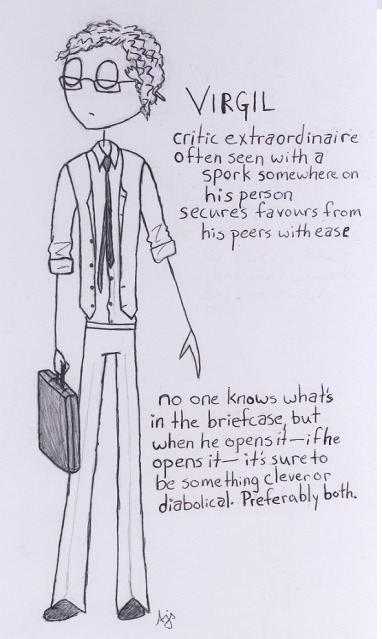 VIRGIL
critic extraordinaire
often seen with a
spork somewhere on
his person
secures favours from
his peers with ease
no one knows what's
in the briefcase, but
when he opens it—if he
opens it—it's sure to
be something clever or
diabolical. Preferably both.